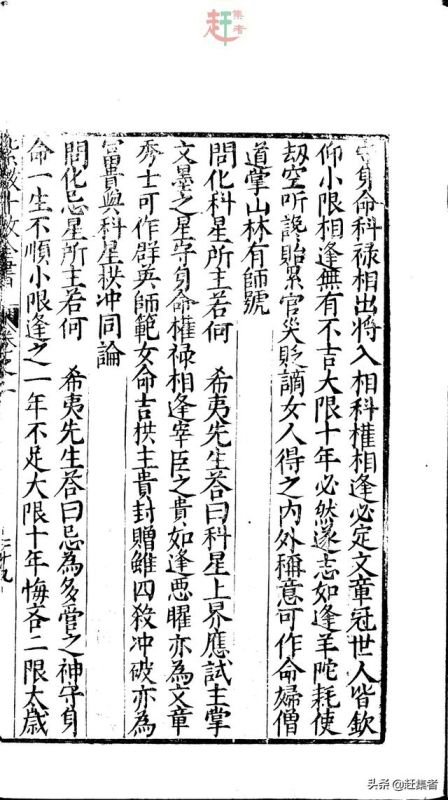 赶集者
守身命科禄相出將入相科權相逢必定文章冠世人皆欽
仰小限相逢無有不吉大限十年必然遂志如逢羊陀耗使
刼空听讒貽累官災貶謫女人得之内外稱意可作命婦僧
道掌山林有師號
問化科星所主若何　希夷先生荅曰科星上界應試主掌
文墨之星守身命權禄相逢宰臣之貴如逢惡曜亦為文章
秀士可作群英師範女命吉拱主貴封贈雖四殺冲破亦為
富貴與科星拱冲同論
問化忌星所主若何　希夷先生荅曰忌為多管之神守身
命一生不順小限逢之一年不足大限十年悔吝二限太歲
数全書
二十九
头条 @赶集者